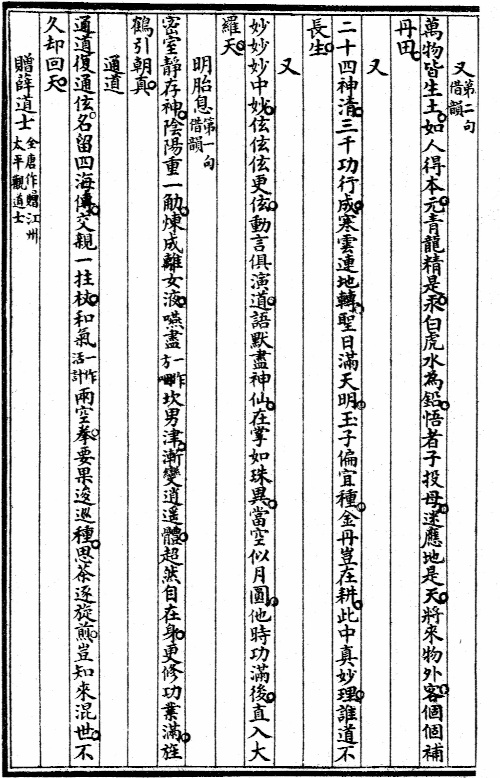 又第二句借韻
萬物皆生土。如人得本元。青龍精是汞。白虎水為鉛。悟者子投母。迷應地是天。將來物外客。個個補
丹田。
又
二十四神清。三千功行成。寒雲連地轉。聖日滿天明。玉子偏宜種。金丹豈在耕。此中真妙理。誰道不
長生。
又
妙妙妙中妙。玄玄玄更玄。動言俱演道。語默盡神仙。在掌如珠異。當空似月圓。他時功滿後。直入大
羅天。
明胎息第一句借韻
密室靜存神。陰陽重一觔。煉成離女液。嚥盡一作方嚥坎男津。漸變逍遥體。超然自在身。更修功業滿。旌
鶴引朝真。
通道
通道復通玄。名留四海傳。交親一拄杖。和氣一作活計兩空拳。要果逡巡種。思茶逐旋煎。豈知來混世。不
久却回天。
贈薛道士全唐作贈江州太平觀道士